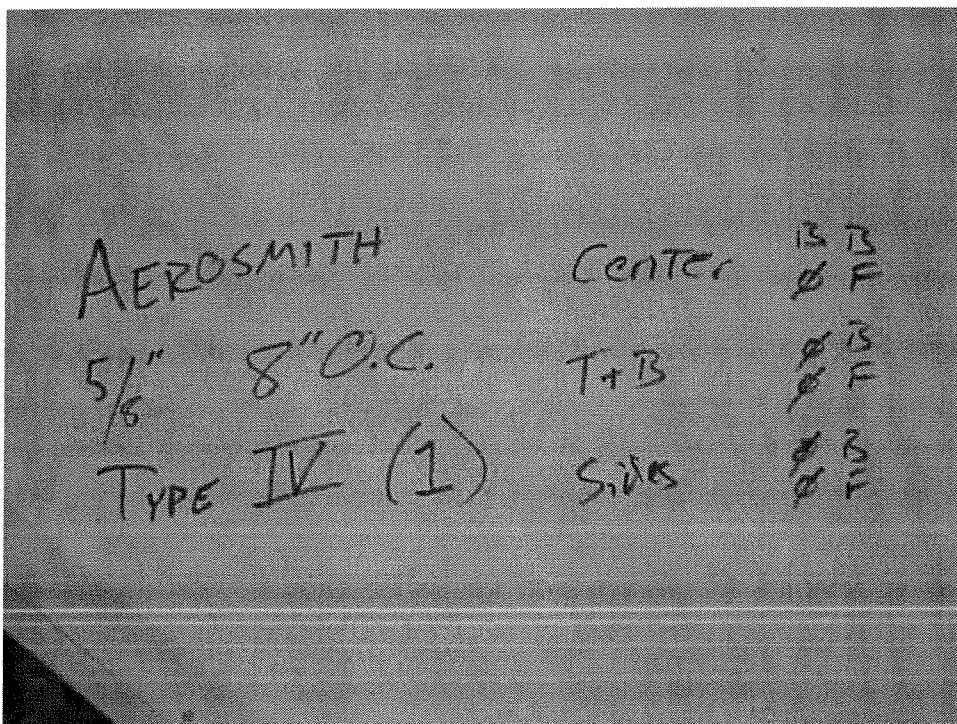 AEROSMITH
5/8" 8" O.C.
TYPE IV (1)
Center B B
Ø F
T+B Ø B
Ø F
Sides Ø B
Ø F